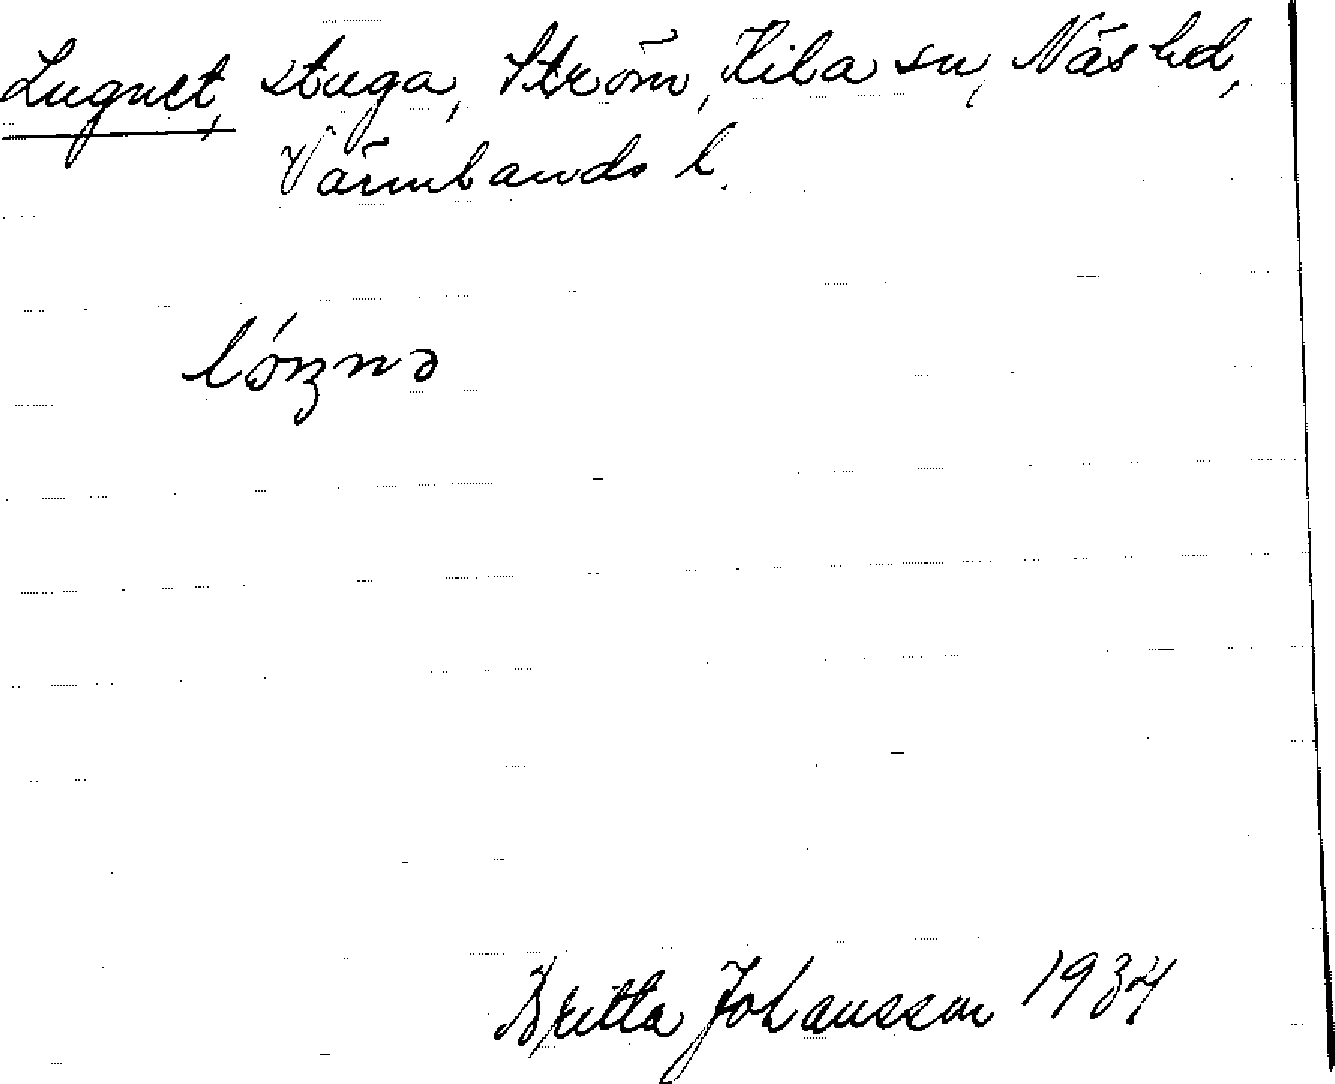 Lugnet, stuga, Ström, Kila sn, Näs hd,
Värmlands l.
Britta Johansson 1934